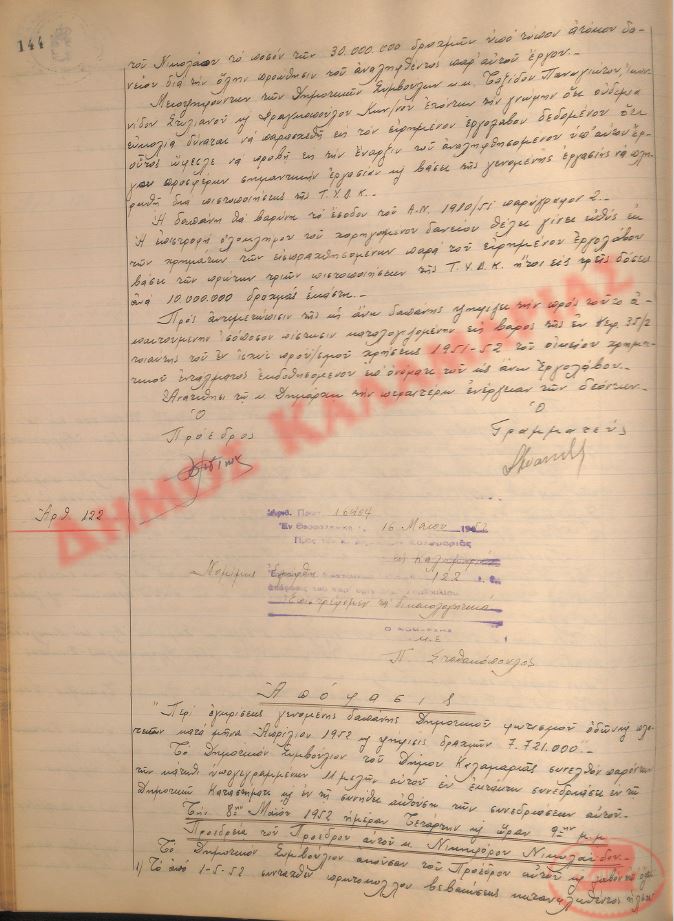 144
τοῦ Νικολάου τὸ ποσὸν τῶν 30.000.000 δραχμῶν ὑπὸ τύπον ἀτόκου δα-
νείου διὰ τὴν ὅλην προώθησιν τοῦ ἀναληφθέντος παρ' αὐτοῦ ἔργου.-
Μειοψηφούντων τῶν Δημοτικῶν Συμβούλων κ.κ. Παναγιώτου,
Στυλιανοῦ κ) Φραγκοπούλου Κων/νου τὴν γνώμην ὅτι οὐδεμία
εὐκολία δύναται νὰ παρασχεθῇ εἰς τὸν εἰρημένον ἐργολάβον δεδομένου ὅτι
οὗτος ὤφειλε νὰ προβῇ εἰς τὴν ἔναρξιν τοῦ ἀναληφθησομένου ὑπ' αὐτοῦ ἔρ-
γου προσφέρων σημαντικὴν ἐργασίαν κ) βάσει τῆς γενομένης ἐργασίας νὰ πλη-
ρωθῇ διὰ πιστοποιήσεως τῆς Τ.Υ.Δ.Κ.-
Ἡ δαπάνη θὰ βαρύνῃ τὸ ἔσοδον τοῦ Α.Ν. 1910/51 παράγραφον 2.-
Ἡ ἐπιστροφὴ ὁλοκλήρου τοῦ χορηγουμένου δανείου θέλει γίνει εὐθὺς ἐκ
τῶν χρημάτων τῶν εἰσπραχθησομένων παρὰ τοῦ εἰρημένου Ἐργολάβου
βάσει τῶν πρώτων τριῶν πιστοποιήσεων τῆς Τ.Υ.Δ.Κ. ἤτοι εἰς τρεῖς δόσεις
ἀνὰ 10.000.000 δραχμὰς ἑκάστη.-
Πρὸς ἀντιμετώπισιν τῆς ὡς ἄνω δαπάνης ψηφίζει τὴν πρὸς τοῦτο ἀ-
παιτουμένην ἰσόποσον πίστωσιν καταλογιζομένην εἰς βάρος τῆς ἐν
τοιαύτης τοῦ ἐν ἰσχύϊ προϋ/σμοῦ χρήσεως 1951-52 τοῦ οἰκείου χρημα-
τικοῦ ἐντάλματος ἐκδοθησομένου ἐπ' ὀνόματι τοῦ ὡς ἄνω ἐργολάβου.-
Ἀνατίθησι τῷ κ. Δημάρχῳ τὴν περαιτέρω ἐνέργειαν τῶν δεόντων.-
Ὁ Ὁ
Πρόεδρος Γραμματεύς
ΔΗΜΟΣ ΚΑΛΑΜΑΡΙΑΣ
Ἀρθ. 122
Ἀριθ. Πρωτ. 16464
Ἐν Θεσσαλονίκῃ 16 Μαΐου 1952
122
Ἐπιστρέφομεν τὰ δικαιολογητικά
Ο ΝΟΜΑΡΧΗΣ
Μ.Ε.
Π. Σταθακόπουλος
Ἀπόφασις
"Περὶ ἐγκρίσεως γενομένης δαπάνης Δημοτικοῦ φωτισμοῦ ὁδῶν κ) πλα-
τειῶν κατὰ μῆνα Ἀπρίλιον 1952 κ) ψήφισις δραχμῶν 7.721.000.-
Τὸ Δημοτικὸν Συμβούλιον τοῦ Δήμου Καλαμαριᾶς συνελθὸν παρόντων
τῶν κάτωθι ὑπογεγραμμένων 11 μελῶν αὐτοῦ ἐν ἐκτάκτῳ συνεδριάσει ἐν τῷ
Δημοτικῷ Καταστήματι κ) ἐν τῇ συνήθει αἰθούσῃ τῶν συνεδριάσεων αὐτοῦ.
Τῆς 8ης Μαΐου 1952 ἡμέραν Τετάρτην κ) ὥραν 9ην μ.μ.
Προεδρείᾳ τοῦ Προέδρου αὐτοῦ κ. Νικηφόρου Νικολαΐδου.-
Τὸ Δημοτικὸν Συμβούλιον ἀκοῦσαν τοῦ Προέδρου αὐτοῦ κ) λαβὸν ὑπ' ὄψει
1) Τὸ ἀπὸ 1-5-52 συνταχθὲν πρωτόκολλον βεβαιώσεως καταναλωθέντος